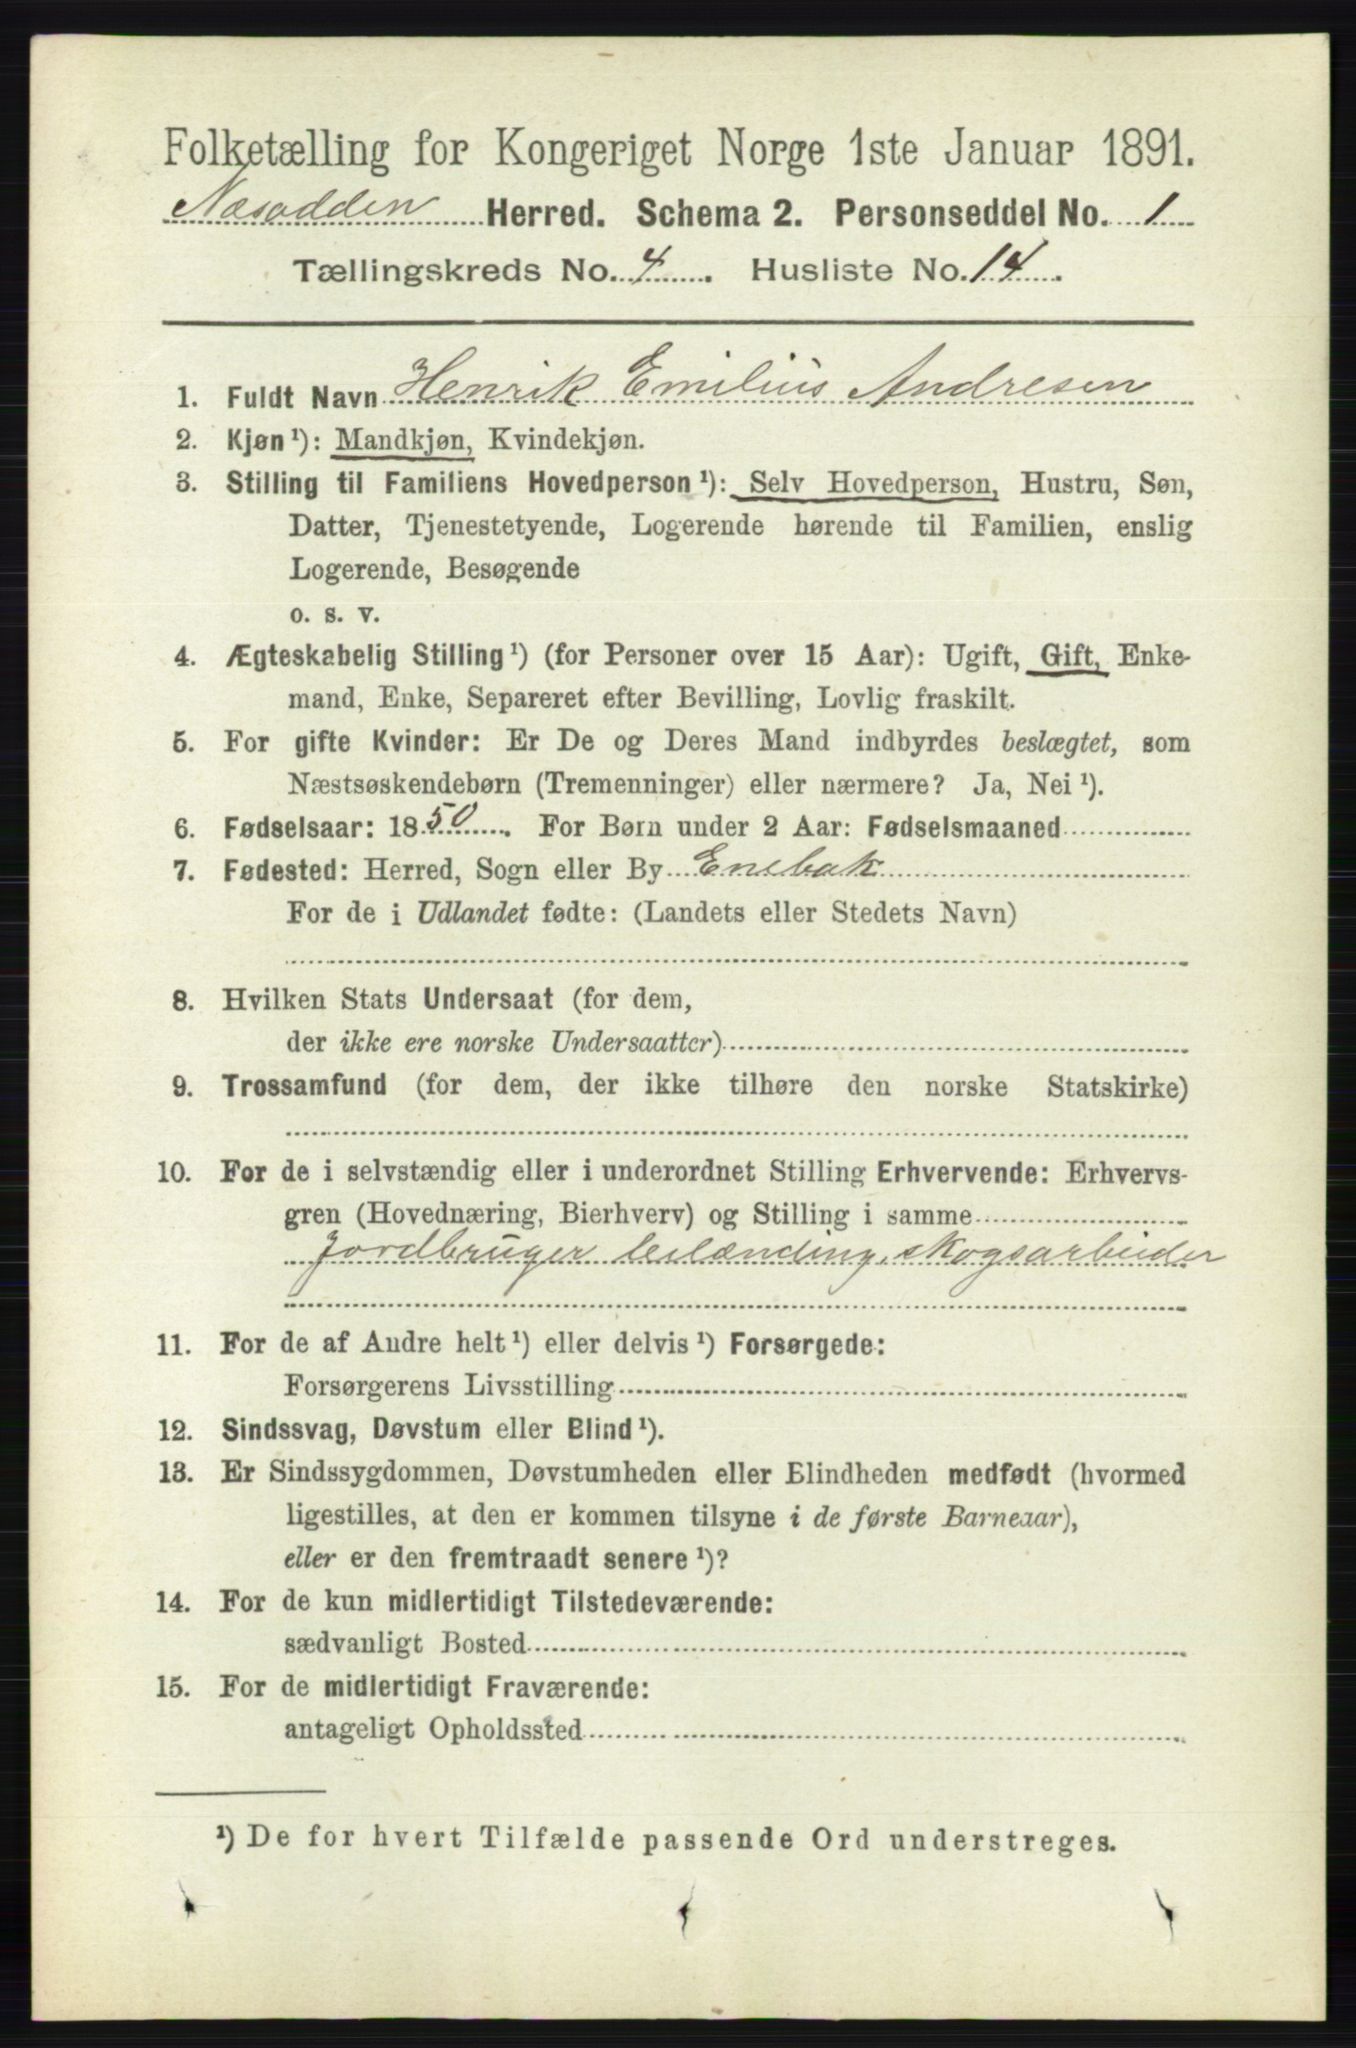 Folketælling for Kongeriget Norge 1ste Januar 1891.
Næsodden Herred. Schema 2. Personseddel No. 1
Tællingskreds No. 4. Husliste No. 14.
1. Fuldt Navn Henrik Emilius Andresen
2. Kjøn ¹): Mandkjøn, Kvindekjøn.
3. Stilling til Familiens Hovedperson ¹): Selv Hovedperson, Hustru, Søn,
Datter, Tjenestetyende, Logerende hørende til Familien, enslig
Logerende, Besøgende
o. s. v.
4. Ægteskabelig Stilling ¹) (for Personer over 15 Aar): Ugift, Gift, Enke-
mand, Enke, Separeret efter Bevilling, Lovlig fraskilt.
5. For gifte Kvinder: Er De og Deres Mand indbyrdes beslægtet, som
Næstsøskendebørn (Tremenninger) eller nærmere? Ja, Nei ¹).
6. Fødselsaar: 1850. For Børn under 2 Aar: Fødselsmaaned
7. Fødested: Herred, Sogn eller By Enebak
For de i Udlandet fødte: (Landets eller Stedets Navn)
8. Hvilken Stats Undersaat (for dem,
der ikke ere norske Undersaatter)
9. Trossamfund (for dem, der ikke tilhøre den norske Statskirke)
10. For de i selvstændig eller i underordnet Stilling Erhvervende: Erhvervs-
gren (Hovednæring, Bierhverv) og Stilling i samme
Jordbruger leilænding, skogsarbeider
11. For de af Andre helt ¹) eller delvis ¹) Forsørgede:
Forsørgerens Livsstilling
12. Sindssvag, Døvstum eller Blind ¹).
13. Er Sindssygdommen, Døvstumheden eller Blindheden medfødt (hvormed
ligestilles, at den er kommen tilsyne i de første Barneaar),
eller er den fremtraadt senere ¹)?
14. For de kun midlertidigt Tilstedeværende:
sædvanligt Bosted
15. For de midlertidigt Fraværende:
antageligt Opholdssted
¹) De for hvert Tilfælde passende Ord understreges.